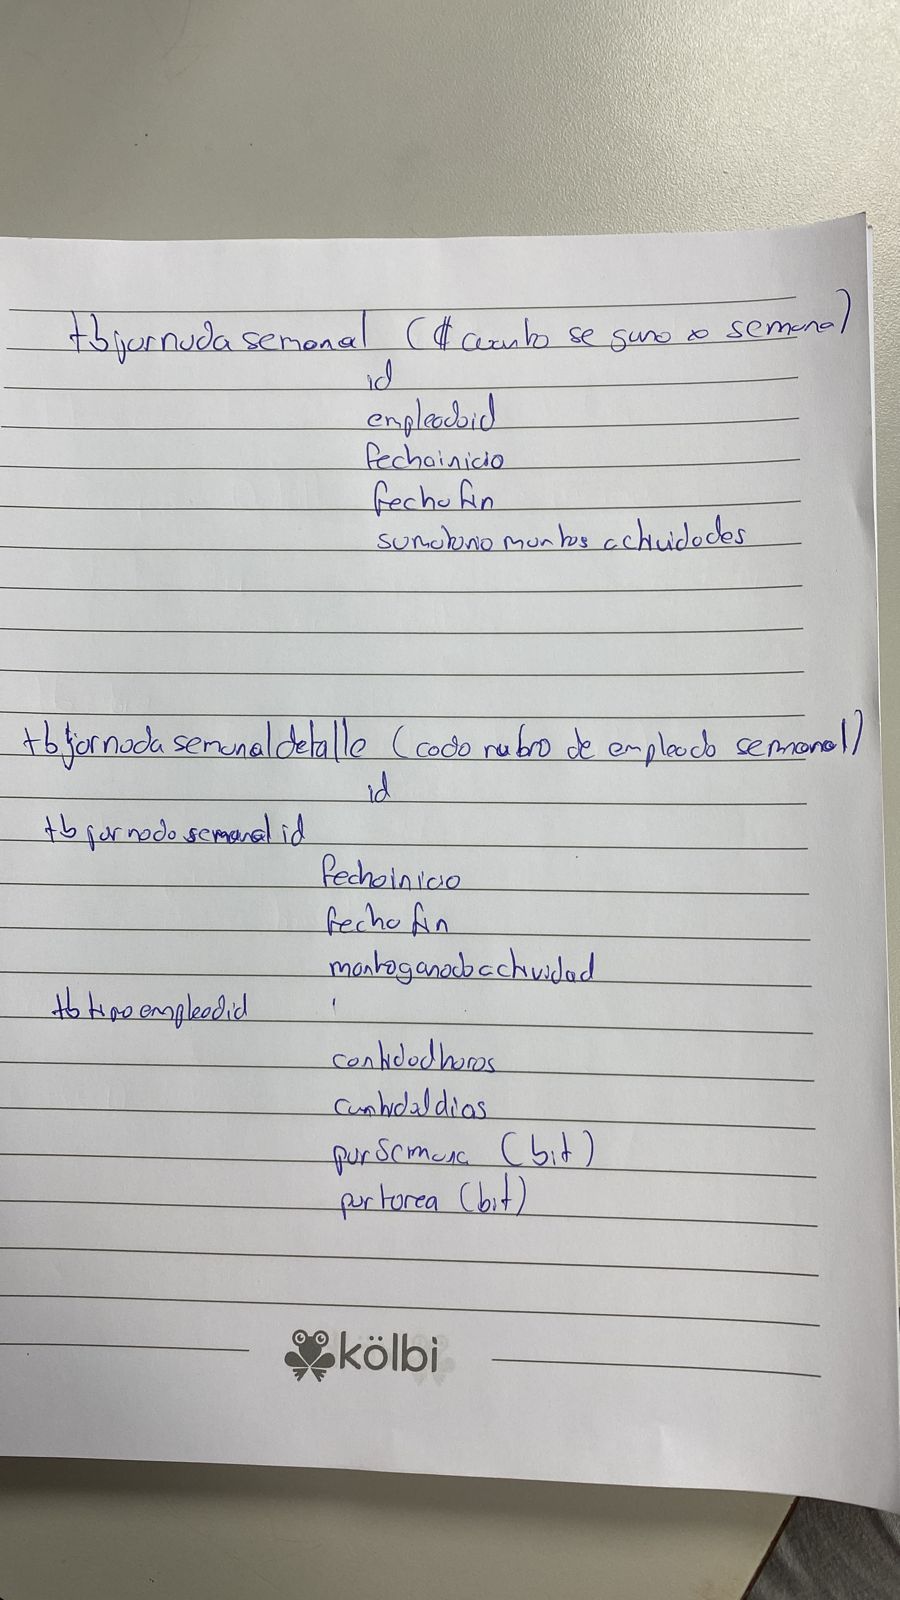 tbjornadasemanal (₡ cuanto se gano x semana)
id
empleadoid
fechainicio
fechafin
sumatoriomontosactividades
tbjornadasemanaldetalle (cada rubro de empleado semanal)
id
tbjornadasemanalid
fechainicio
fechafin
montoganadoactividad
tbtipoempleadid
cantidadhoras
cantidaddias
porsemana (bit)
portarea (bit)
kölbi